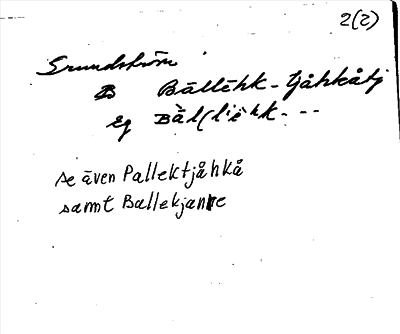 2(2)
Grundström
B Bällēhk-tjåhkåtj
Eg Bàl(l'ē'hk---
se även Pallektjåhkå
samt Ballekjaure